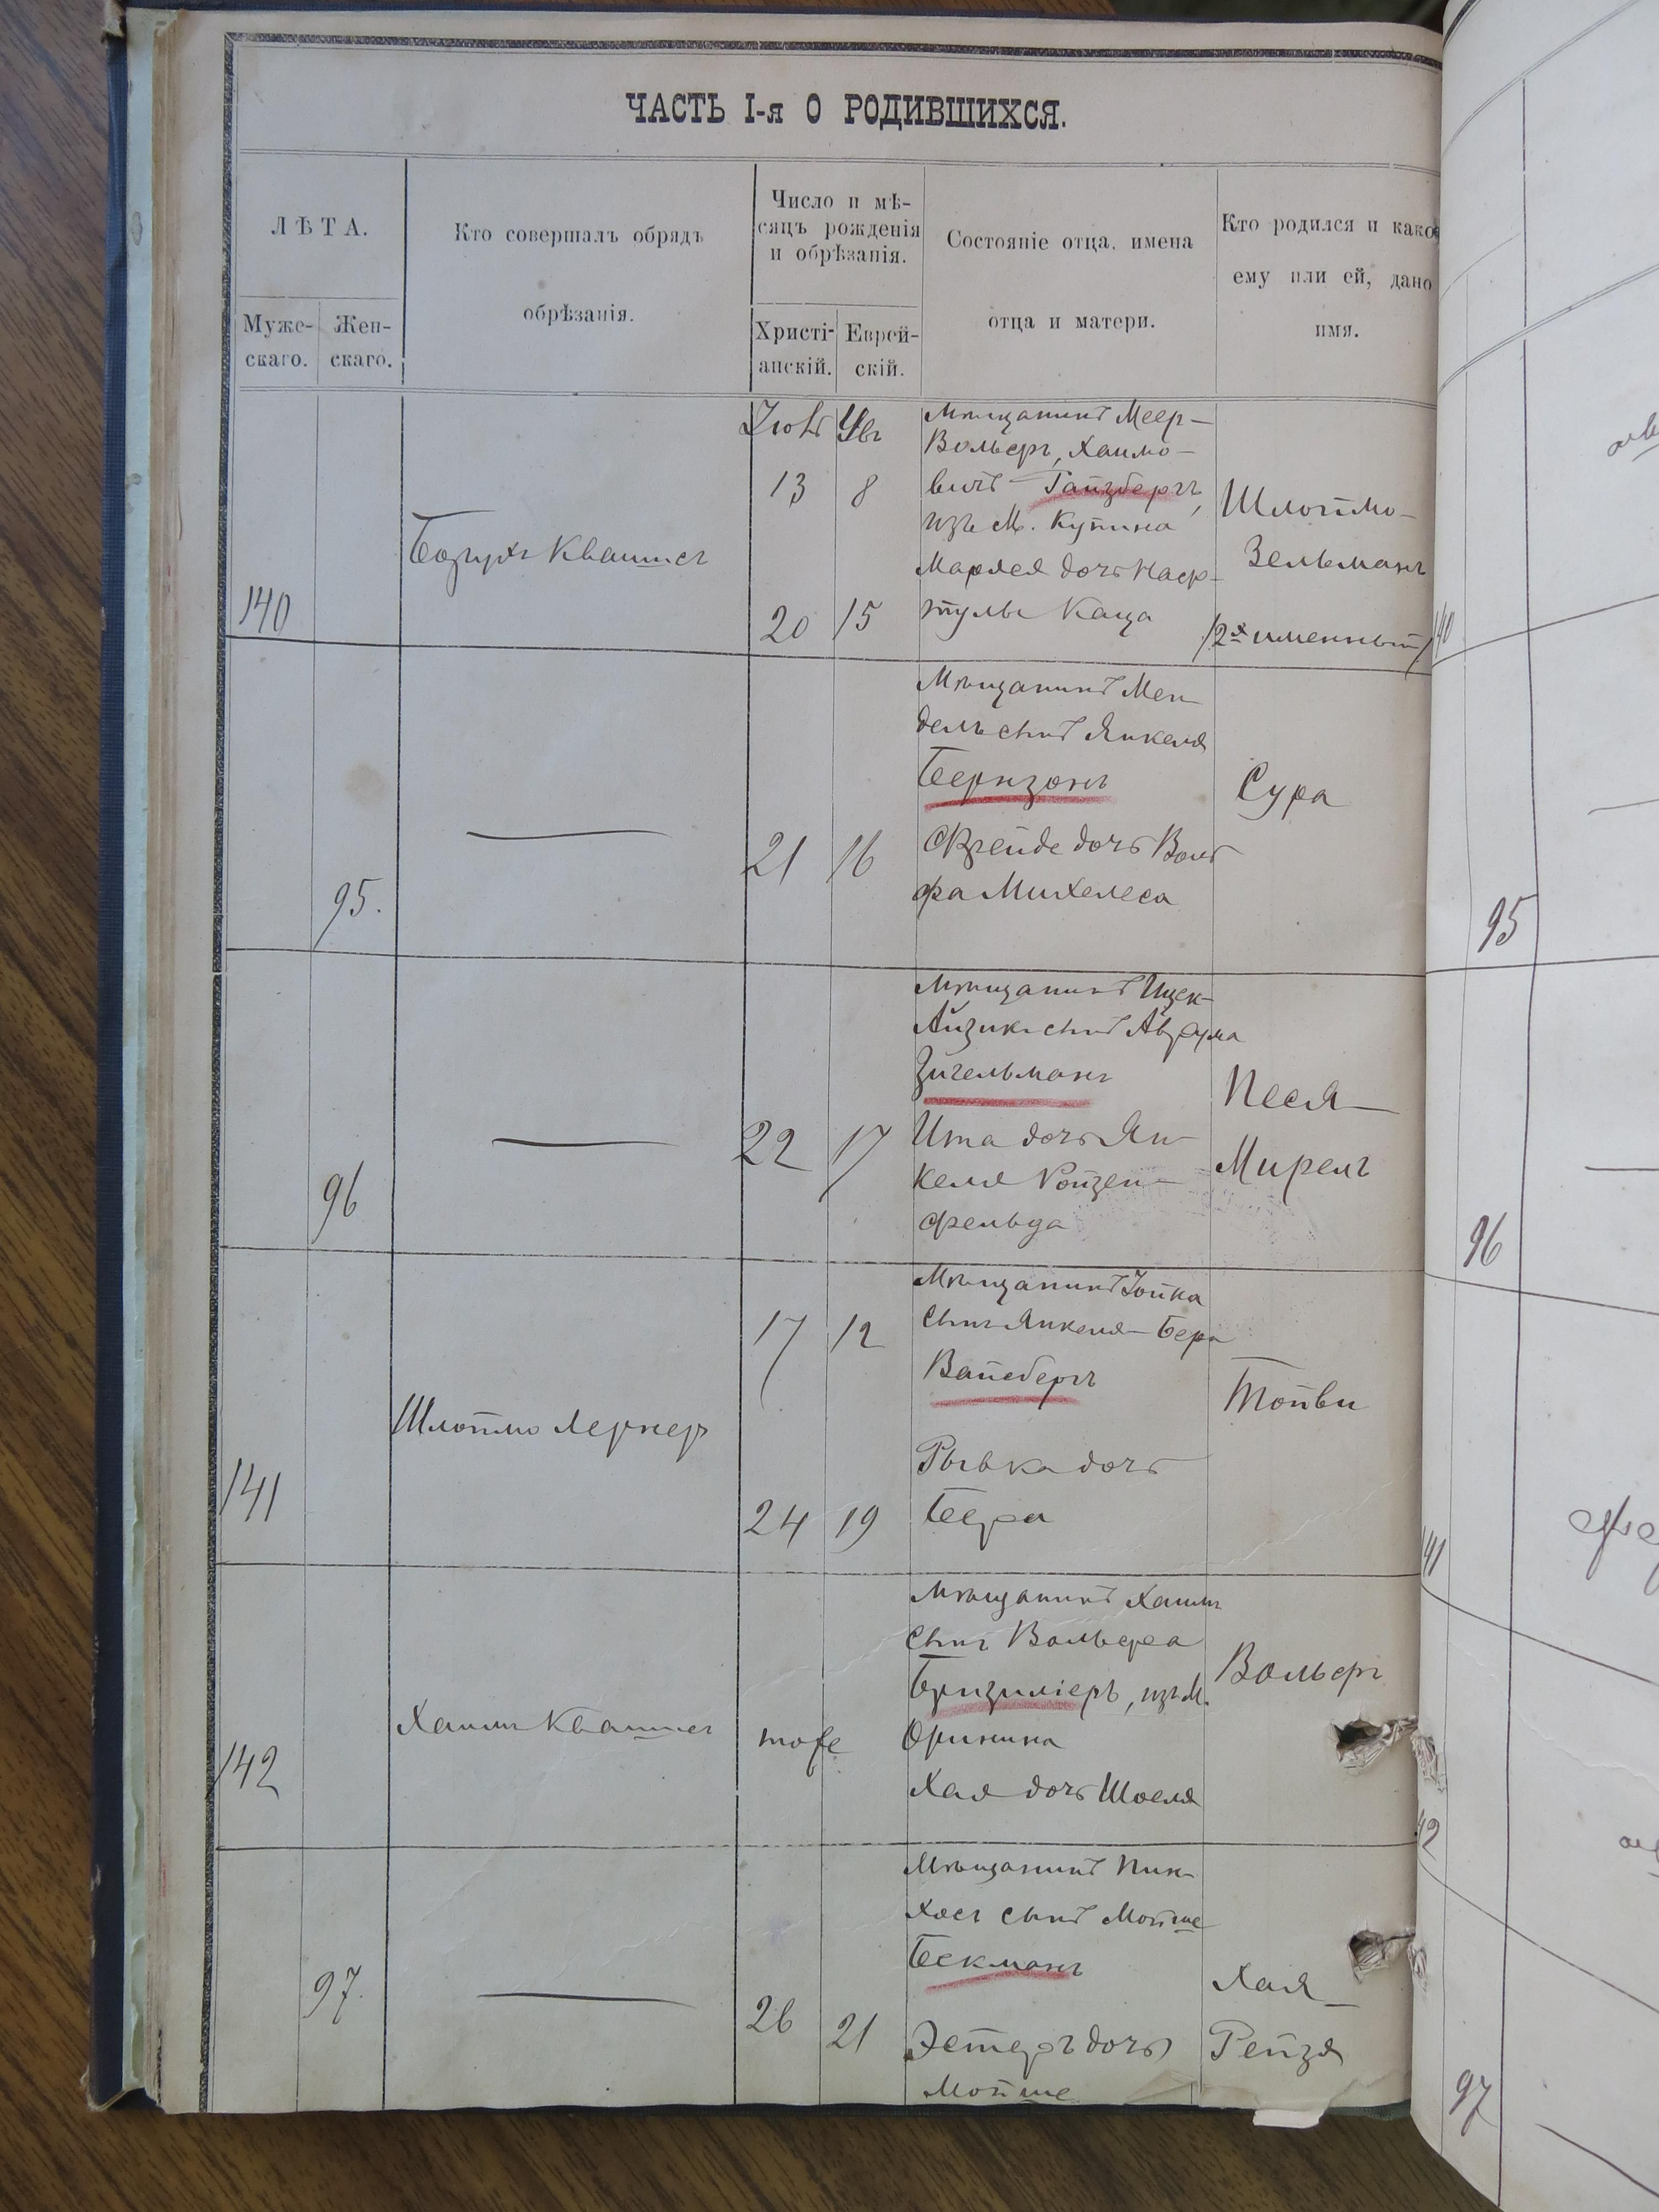 ЧАСТЬ I-я О РОДИВШИХСЯ.
ЛѢТА.
Муже-
скаго.
Жен-
скаго.
Кто совершалъ обрядъ
обрѣзанія.
Число и мѣ-
сяцъ рожденія
и обрѣзанія.
Христі-
анскій.
Еврей-
скій.
Состояніе отца, имена
отца и матери.
Кто родился и какое
ему или ей, дано
имя.
140
Борухъ Квашнеръ
13 8
20 15
Мѣщанинъ Меер-
Вольфъ, Хаимо-
вичъ Гайзбергъ,
изъ М. Купина
дочь Наф-
тулы Каца
Шлоймо-
Зельманъ
/2х именный/
95.
21 16
Мѣщанинъ Мен
дель сынъ Янкеля
Беринзонъ
дочь Воль
фа Михелеса
Сура
95
96
22 17
Мѣщанинъ Ицек-
Айзикъ сынъ Аврума
Зигельманъ
Ита дочь Ян-
келя Ройзен-
фельда
Песя-
Мирель
96
141
Шлоймо Лернеръ
17 12
24 19
Мѣщанинъ Іойна
сынъ Янкеля-Бера
Вайсбергъ
Рывка дочь
Бера
Тойви
41
142
Хаимъ Квашнеръ
тоже
Мѣщанинъ Хаимъ
сынъ Вольфа
изъ М.
Оринина
Хая дочь Шоеля
Вольфъ
42
97.
26 21
Мѣщанинъ Пин-
хосъ сынъ Мойше
Бекманъ
Эстеръ дочь
Мойше
Хая-
Рейзя
97